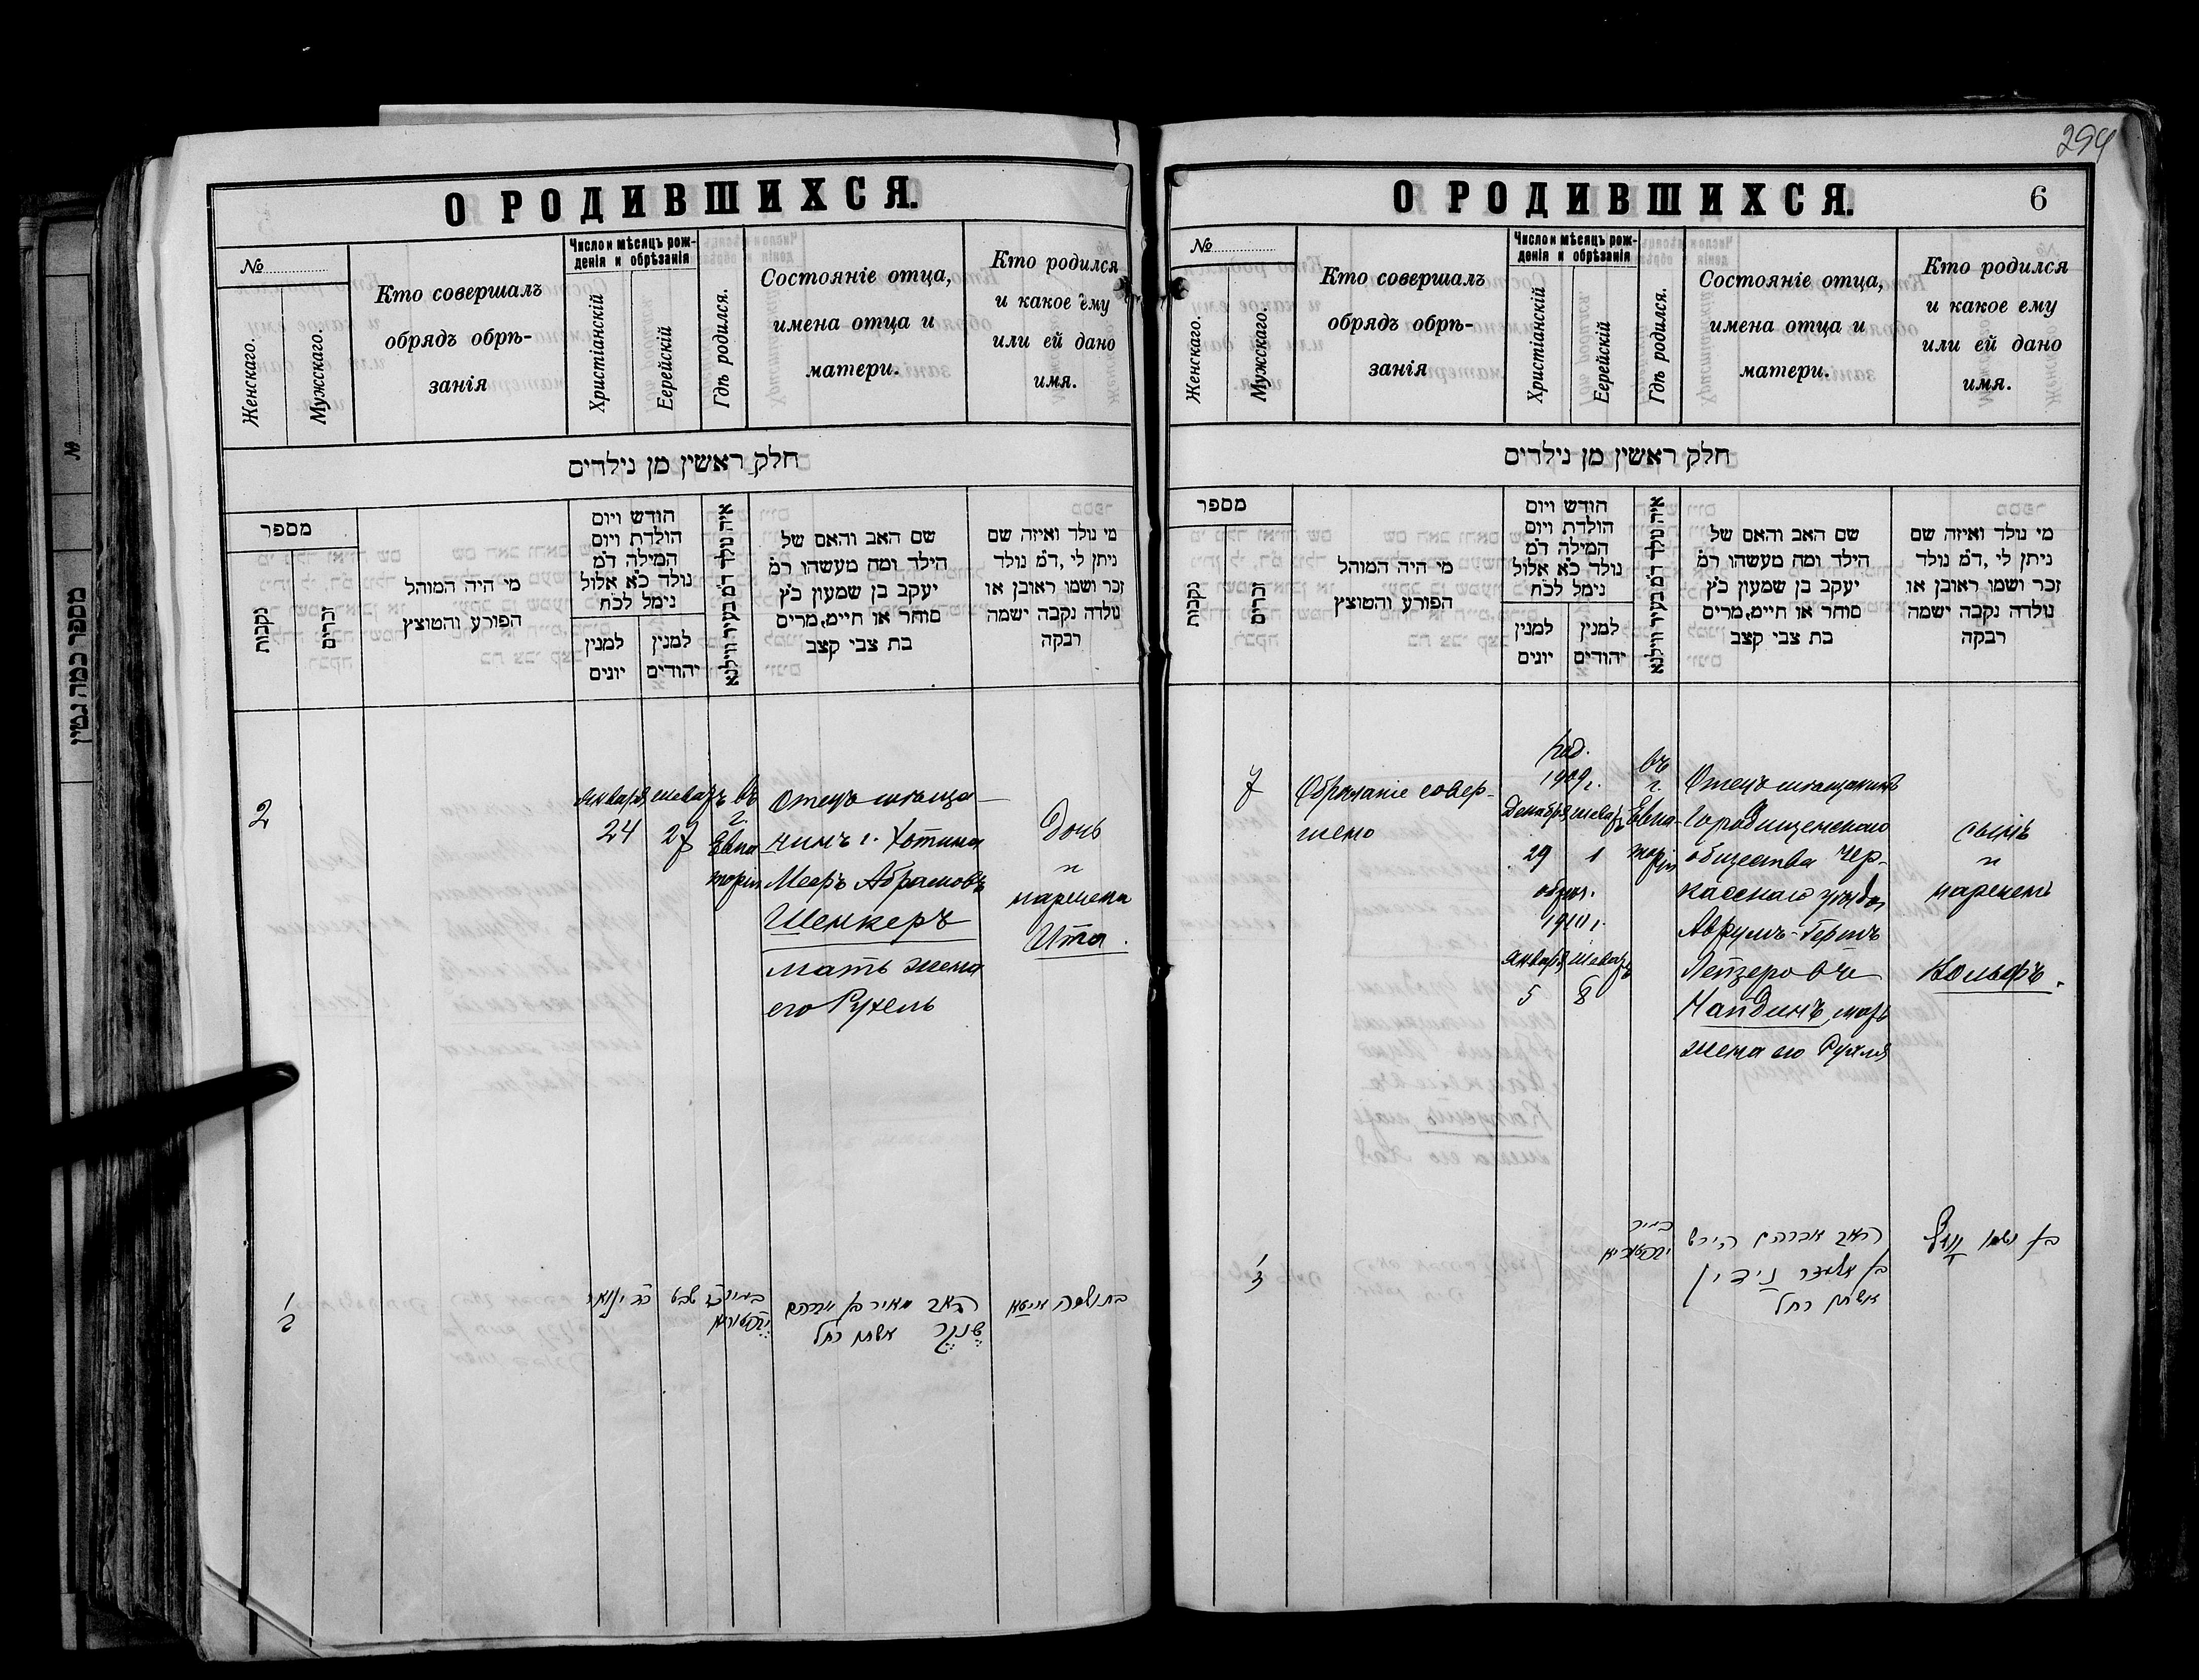 О РОДИВШИХСЯ.
№
Женскаго.
Мужскаго.
Кто совершалъ
обрядъ обрѣ-
занія
Число и мѣсяцъ рож-
денія и обрѣзанія
Христіанскій
Еерейскій
Гдѣ родился.
Состояніе отца,
имена отца и
матери.
Кто родился
и какое ему
или ей дано
имя.
חלק ראשין מן נילדים
מספר
נקבות
זכרים
מי היה המוהל
הפורע והטוצץ
חודש ויום
הולדת ויום
המילה דמ
נולד כא אלול
נימל לכח
למנין
יונים
למנין
יהודים
איה נולד דמ בעיר ווילנא
שם האב והאם של
הילד ומה מעשהו רמ
יעקב בן שמעון כץ
סוחר או חיים, מרים
בת צבי קצב
מי נולד ואיזה שם
ניתן לי, דמ נולד
זכר ושמו ראובן או
נולדה נקבה ישמה
רבקה
2
Января
24
шеватъ
27
въ
г.
Евпа
торіи
Отецъ мѣща-
нинъ г. Хотина
Мееръ Абрамовъ
Шенкеръ
мать жена
его Рухель
Дочь
и
наречена
Ита.
שבט
האב מאיר בן אברהם
שנקר אשתו רחל
בת ושמה איטא
294
О РОДИВШИХСЯ.
6
№
Женскаго.
Мужскаго.
Кто совершалъ
обрядъ обрѣ-
занія
Число и мѣсяцъ рож-
денія и обрѣзанія
Христіанскій
Еерейскій
Гдѣ родился.
Состояніе отца,
имена отца и
матери.
Кто родился
и какое ему
или ей дано
имя.
חלק ראשין מן נילדים
מספר
נקבות
זכרים
מי היה המוהל
הפורע והטוצץ
חודש ויום
הולדת ויום
המילה דמ
נולד כא אלול
נימל לכח
למנין
יונים
למנין
יהודים
איה נולד דמ בעיר ווילנא
שם האב והאם של
הילד ומה מעשהו רמ
יעקב בן שמעון כץ
סוחר או חיים, מרים
בת צבי קצב
מי נולד ואיזה שם
ניתן לי, דמ נולד
זכר ושמו ראובן או
נולדה נקבה ישמה
רבקה
Обрѣзаніе совер-
шено
род.
1909 г.
Декабря шеватъ
29 1
обрѣз.
1910 г.
Января шеватъ
5 8
въ
г.
Евпа-
торіи
Отецъ мѣщанинъ
Городищенскаго
общества Чер-
касскаго уѣзда
Аврумъ-Гершъ
Лейзеровъ
Найдинъ, мать
жена его Рухля
сынъ
и
нареченъ
Вольфъ.
האב אברהם הירש
בן אלעזר נידין
אשתו רחל
בן ושמו וולף